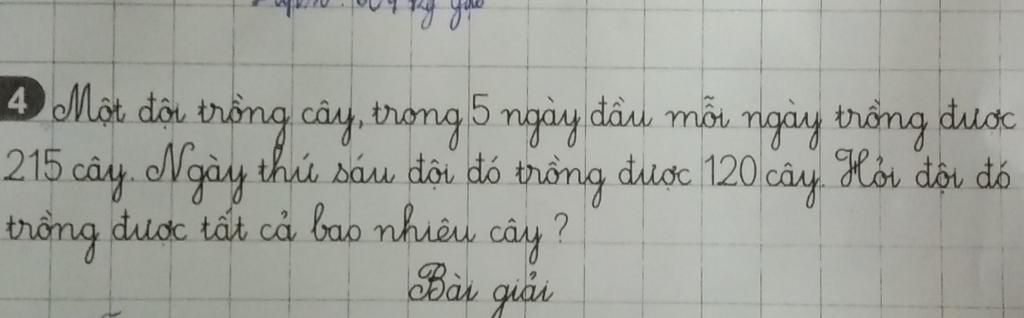 4 Một đội trồng cây, trong 5 ngày đầu mỗi ngày trồng được
215 cây. Ngày thứ sáu đội đó trồng được 120 cây. Hỏi đội đó
trồng được tất cả bao nhiêu cây?
Bài giải